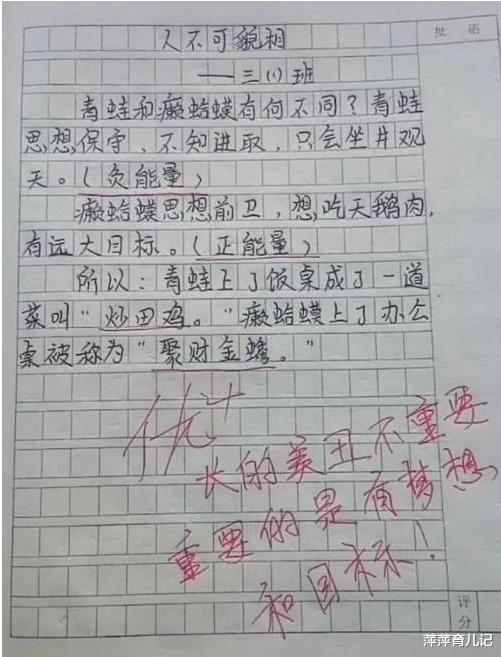 批 语
人不可貌相
——三(1)班
青蛙和癞蛤蟆有何不同？青蛙
思想保守，不知进取，只会坐井观
天。(负能量)
癞蛤蟆思想前卫，想吃天鹅肉，
有远大目标。(正能量)
所以：青蛙上了饭桌成了一道
菜叫“炒田鸡。”癞蛤蟆上了办公
桌被称为“聚财金蟾。”
优+
长的美丑不重要
重要的是有梦想
和目标！
评分
萍萍育儿记